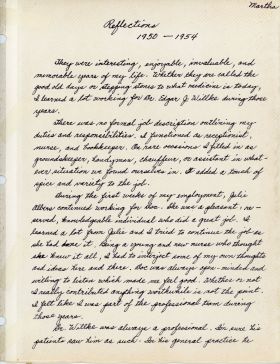 Martha
Reflections
1950 - 1954
They were interesting, enjoyable, invaluable, and
memorable years of my life. Whether they are called the
good old days or stepping stones to what medicine is today,
I learned a lot working for Dr. Edgar J. Willke during those
years.
There was no formal job description outlining my
duties and responsibilities. I functioned as receptionist,
nurse, and bookkeeper. On rare occasions I filled in as
groundskeeper, handyman, chauffeur, or assistant in what-
ever situation we found ourselves in. It added a touch of
spice and variety to the job.
During the first weeks of my employment, Julie
Albers continued working for Doc. She was a pleasant, re-
served, knowledgeable individual who did a great job. I
learned a lot from Julie and I tried to continue the job as
she had done it. Being a young and new nurse who thought
she knew it all, I had to interject some of my own thoughts
and ideas here and there. Doc was always open-minded and
willing to listen which made me feel good. Whether or not
I really contributed anything worthwhile is not the point.
I felt like I was part of the professional team during
those years.
Dr. Willke was always a professional. I'm sure his
patients saw him as such. In his general practice he